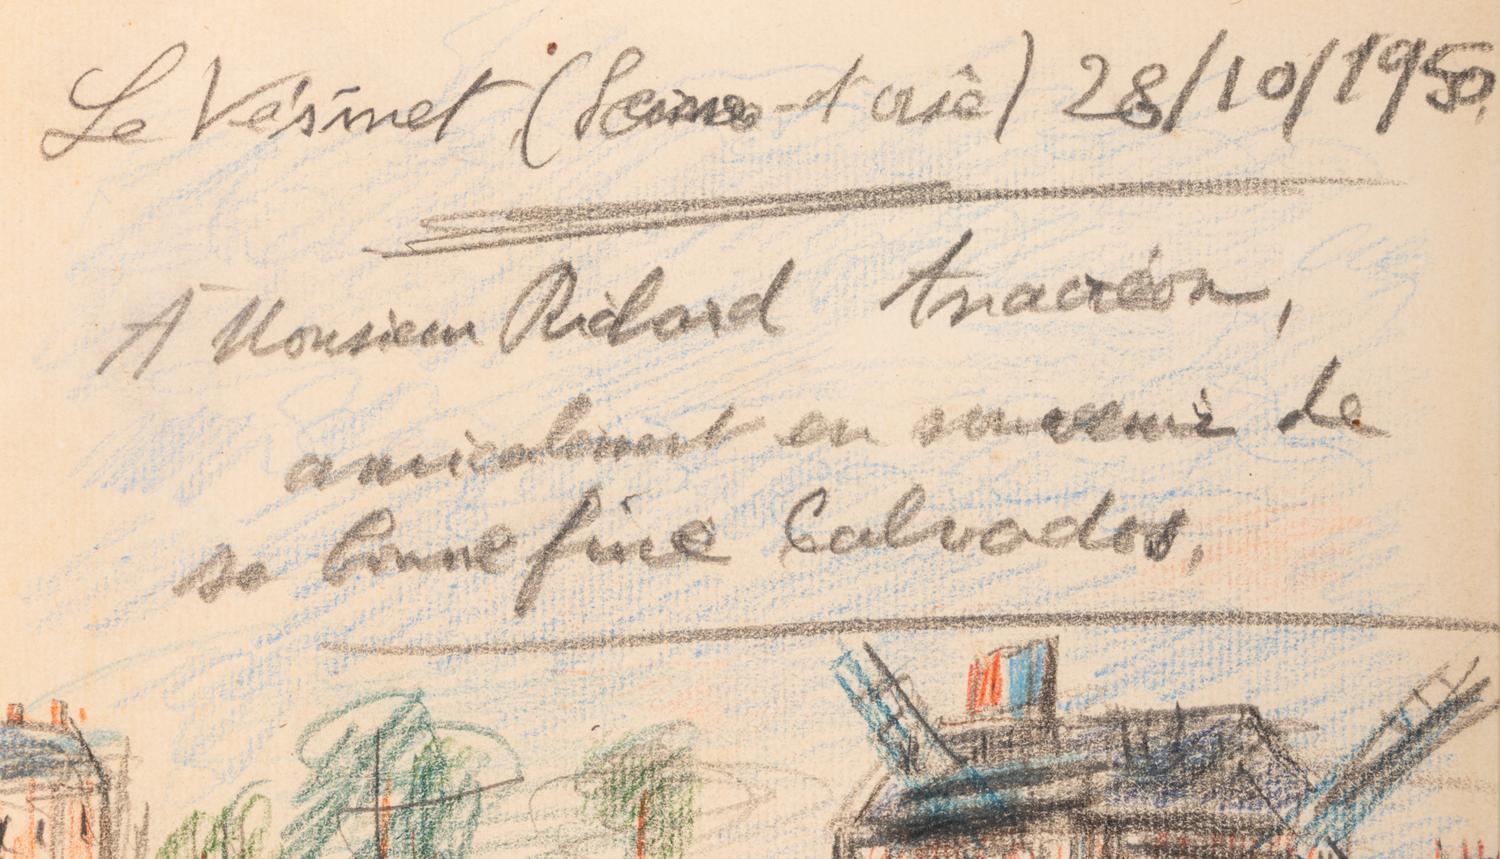 Le Vésinet (Seine-et-oise) 28/10/1950.
A Monsieur Richard Anacréon,
amicalement en souvenir de
sa bonne fine Calvados,